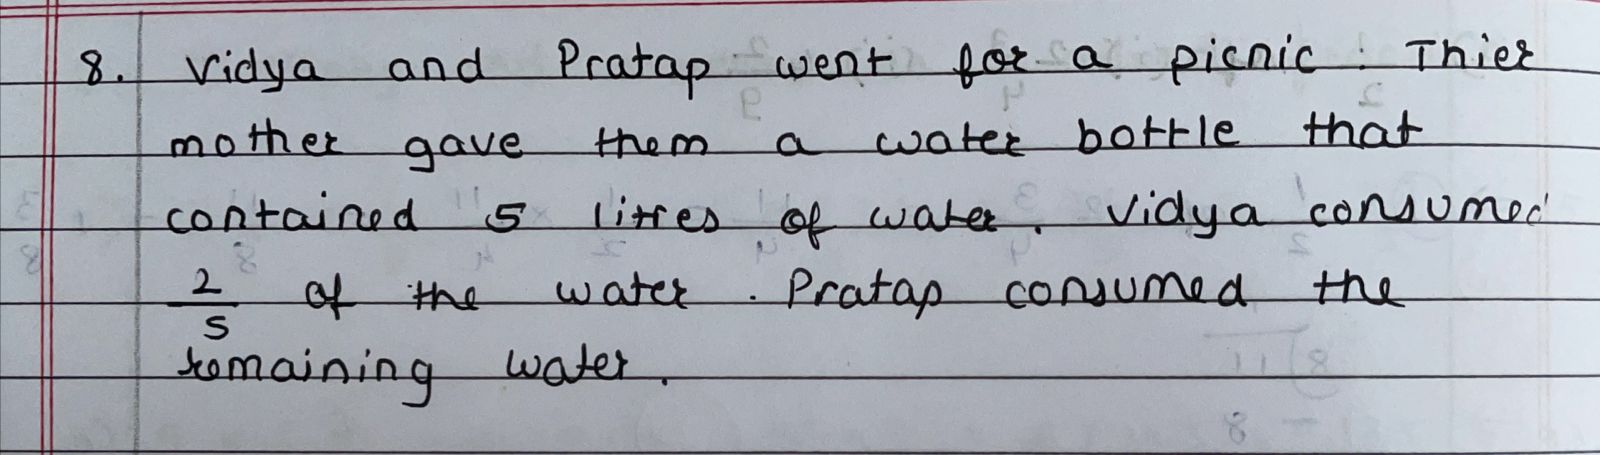 8. Vidya and Pratap went for a picnic. Thier
mother gave them a water bottle that
contained 5 litres of water. Vidya consumed
2/5 of the water. Pratap consumed the
remaining water.